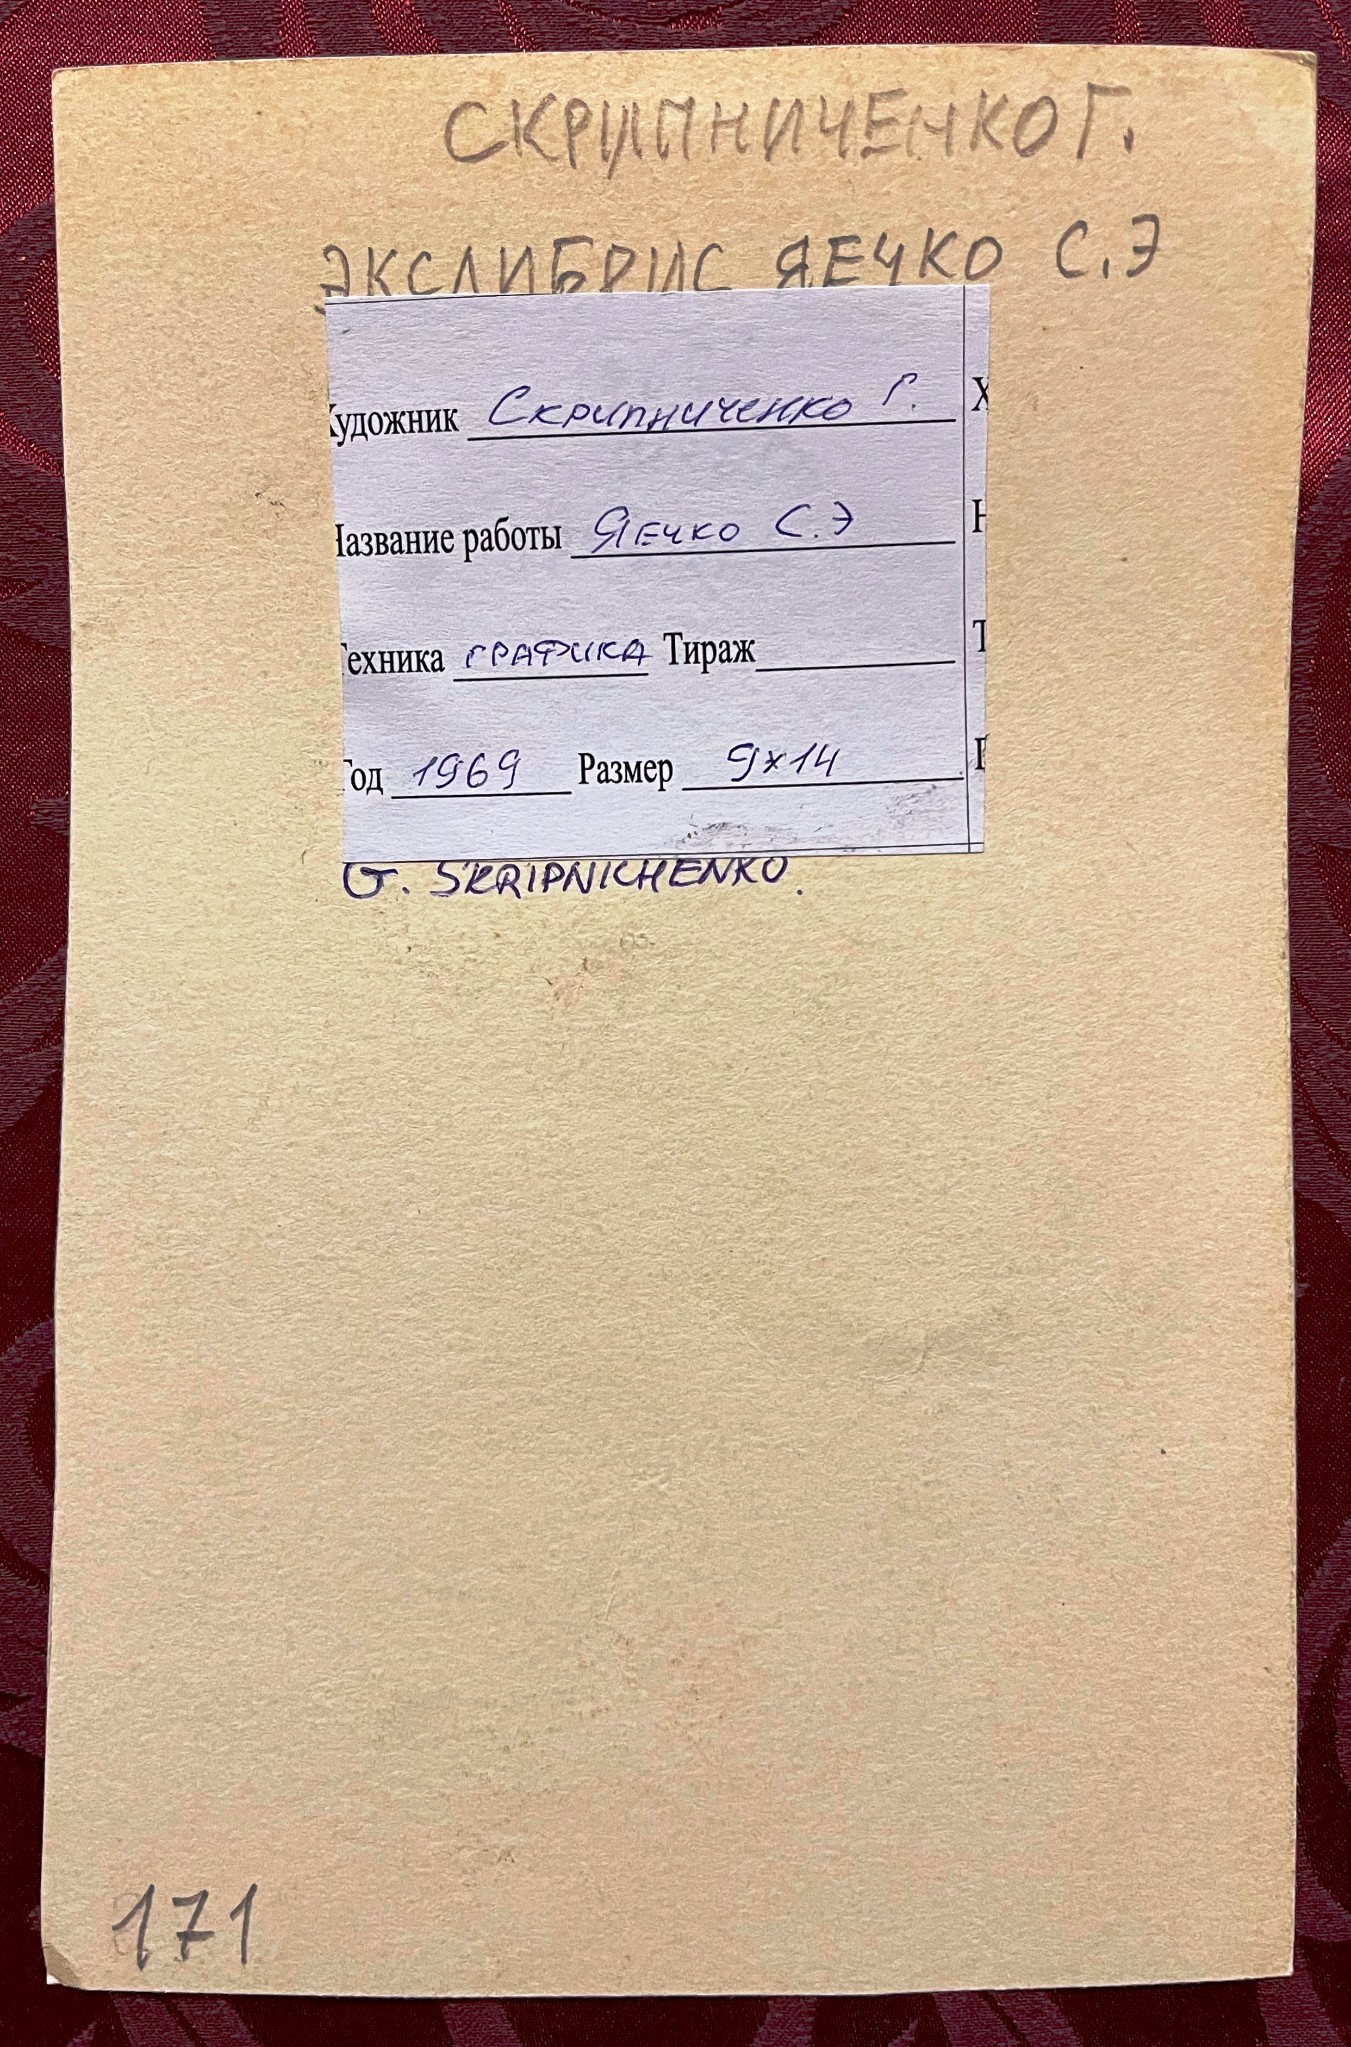 СКРИПНИЧЕНКО Г.
ЭКСЛИБРИС ЯЕЧКО С.Э
Художник Скрипниченко Г.
Название работы Яечко С.Э
Техника ГРАФИКА Тираж
Год 1969 Размер 9x14
G. SKRIPNICHENKO.
171